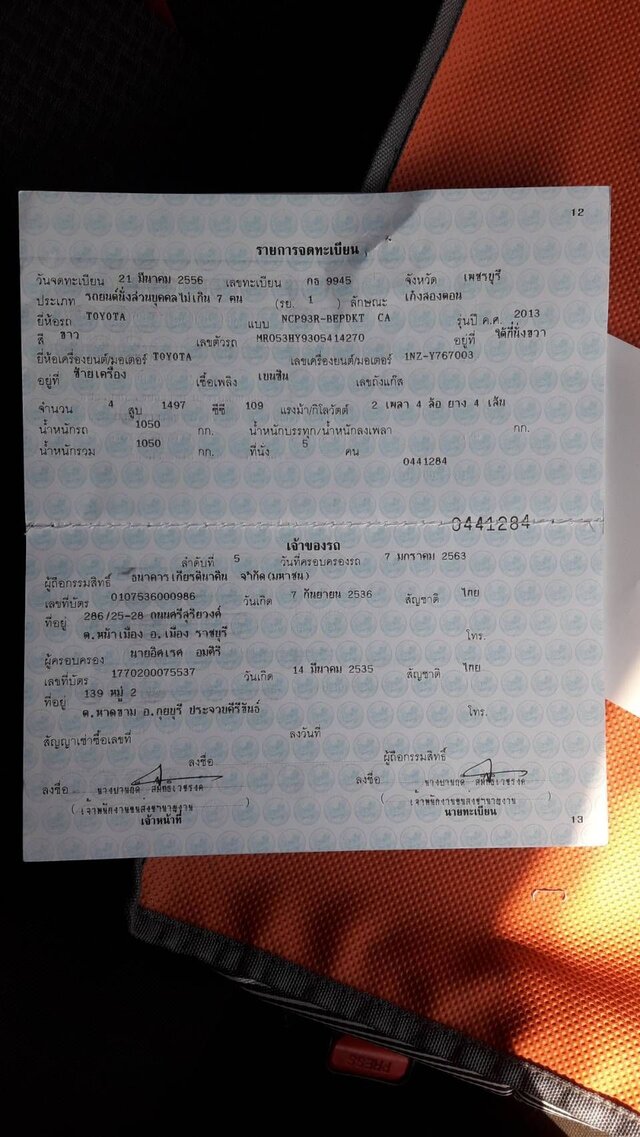 12
รายการจดทะเบียน
วันจดทะเบียน 21 มีนาคม 2556 เลขทะเบียน กธ 9945 จังหวัด เพชรบุรี
ประเภท รถยนต์นั่งส่วนบุคคลไม่เกิน 7 คน (รย. 1 ) ลักษณะ เก๋งสองตอน
ยี่ห้อรถ TOYOTA แบบ NCP93R-BEPDKT CA รุ่นปี ค.ศ. 2013
สี ขาว เลขตัวรถ MR053HY9305414270 อยู่ที่ ใต้ที่นั่งขวา
ยี่ห้อเครื่องยนต์/มอเตอร์ TOYOTA เลขเครื่องยนต์/มอเตอร์ 1NZ-Y767003
อยู่ที่ ซ้ายเครื่อง เชื้อเพลิง เบนซิน เลขถังแก๊ส
จำนวน 4 สูบ 1497 ซีซี 109 แรงม้า/กิโลวัตต์ 2 เพลา 4 ล้อ ยาง 4 เส้น
น้ำหนักรถ 1050 กก. น้ำหนักบรรทุก/น้ำหนักลงเพลา กก.
น้ำหนักรวม 1050 กก. ที่นั่ง 5 คน
0441284
0441284
เจ้าของรถ
ลำดับที่ 5 วันที่ครอบครองรถ 7 มกราคม 2563
ผู้ถือกรรมสิทธิ์ ธนาคารเกียรตินาคิน จำกัด(มหาชน)
เลขที่บัตร 0107536000986 วันเกิด 7 กันยายน 2536 สัญชาติ ไทย
ที่อยู่ 286/25-28 ถนนศรีสุริยวงศ์
ต.หน้าเมือง อ.เมือง ราชบุรี โทร.
ผู้ครอบครอง นายอิศเรศ อมศิริ
เลขที่บัตร 1770200075537 วันเกิด 14 มีนาคม 2535 สัญชาติ ไทย
ที่อยู่ 139 หมู่ 2
ต.หาดขาม อ.กุยบุรี ประจวบคีรีขันธ์ โทร.
สัญญาเช่าซื้อเลขที่ ลงวันที่
ลงชื่อ ผู้ถือกรรมสิทธิ์
ลงชื่อ ลงชื่อ
(เจ้าพนักงานขนส่งชำนาญงาน) (เจ้าพนักงานขนส่งชำนาญงาน)
เจ้าหน้าที่ นายทะเบียน
13
PRESS